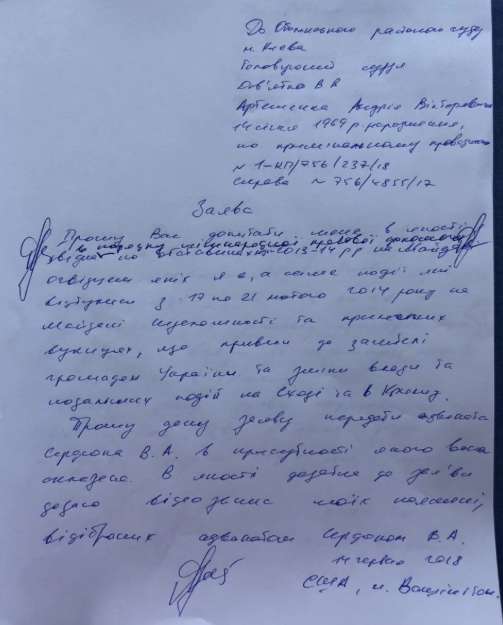 До Оболонського районного суду
м. Києва
Головуючий суддя
Дев'ятко В.В
Артеменка Андрія Вікторовича
14 січня 1969 р народження,
по кримінальному провадженню
№ 1-КП/756/237/18
Справа № 756/4855/17
Заява
Прошу Вас допитати мене в якості
в порядку міжнародної правової допомоги
свідка по 2013-14 рр на Майдані
очевидцем яких я є, а саме події які
відбулися з 17 по 21 лютого 2014 року на
Майдані незалежності та прилеглих
вулицях, що привели до загибелі
громадян України та зміни влади та
подальших подій на Сході та в Криму.
Прошу дану заяву передати адвоката
Сердюка В.А. в присутності якого вона
складена. В якості додатка до заяви
додано відеозапис моїх пояснень,
відібраних адвокатом Сердюком В.А.
14 червня 2018
США, м. Вашингтон.